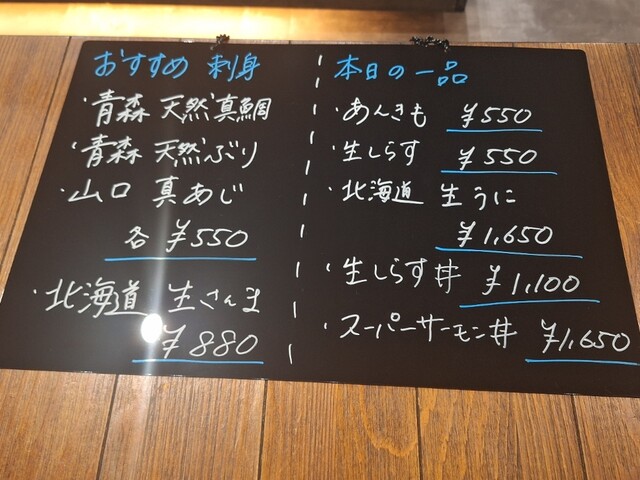 おすすめ 刺身
・青森 天然真鯛
・青森 天然ぶり
・山口 真あじ
各 ¥550
・北海道 生さんま
¥880
本日の一品
・あんきも ¥550
・生しらす ¥550
・北海道 生うに
¥1,650
・生しらす丼 ¥1,100
・スーパーサーモン丼 ¥1,650